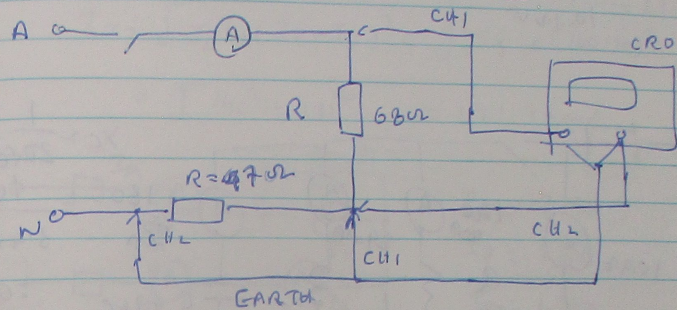 CH1
A
A
C
CRO
R
68Ω
R=47Ω
N
CH2
CH1
CH2
EARTH